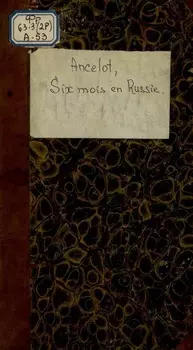 Фр
63.3(2Р)
А-53
Ancelot,
Six mois en Russie.